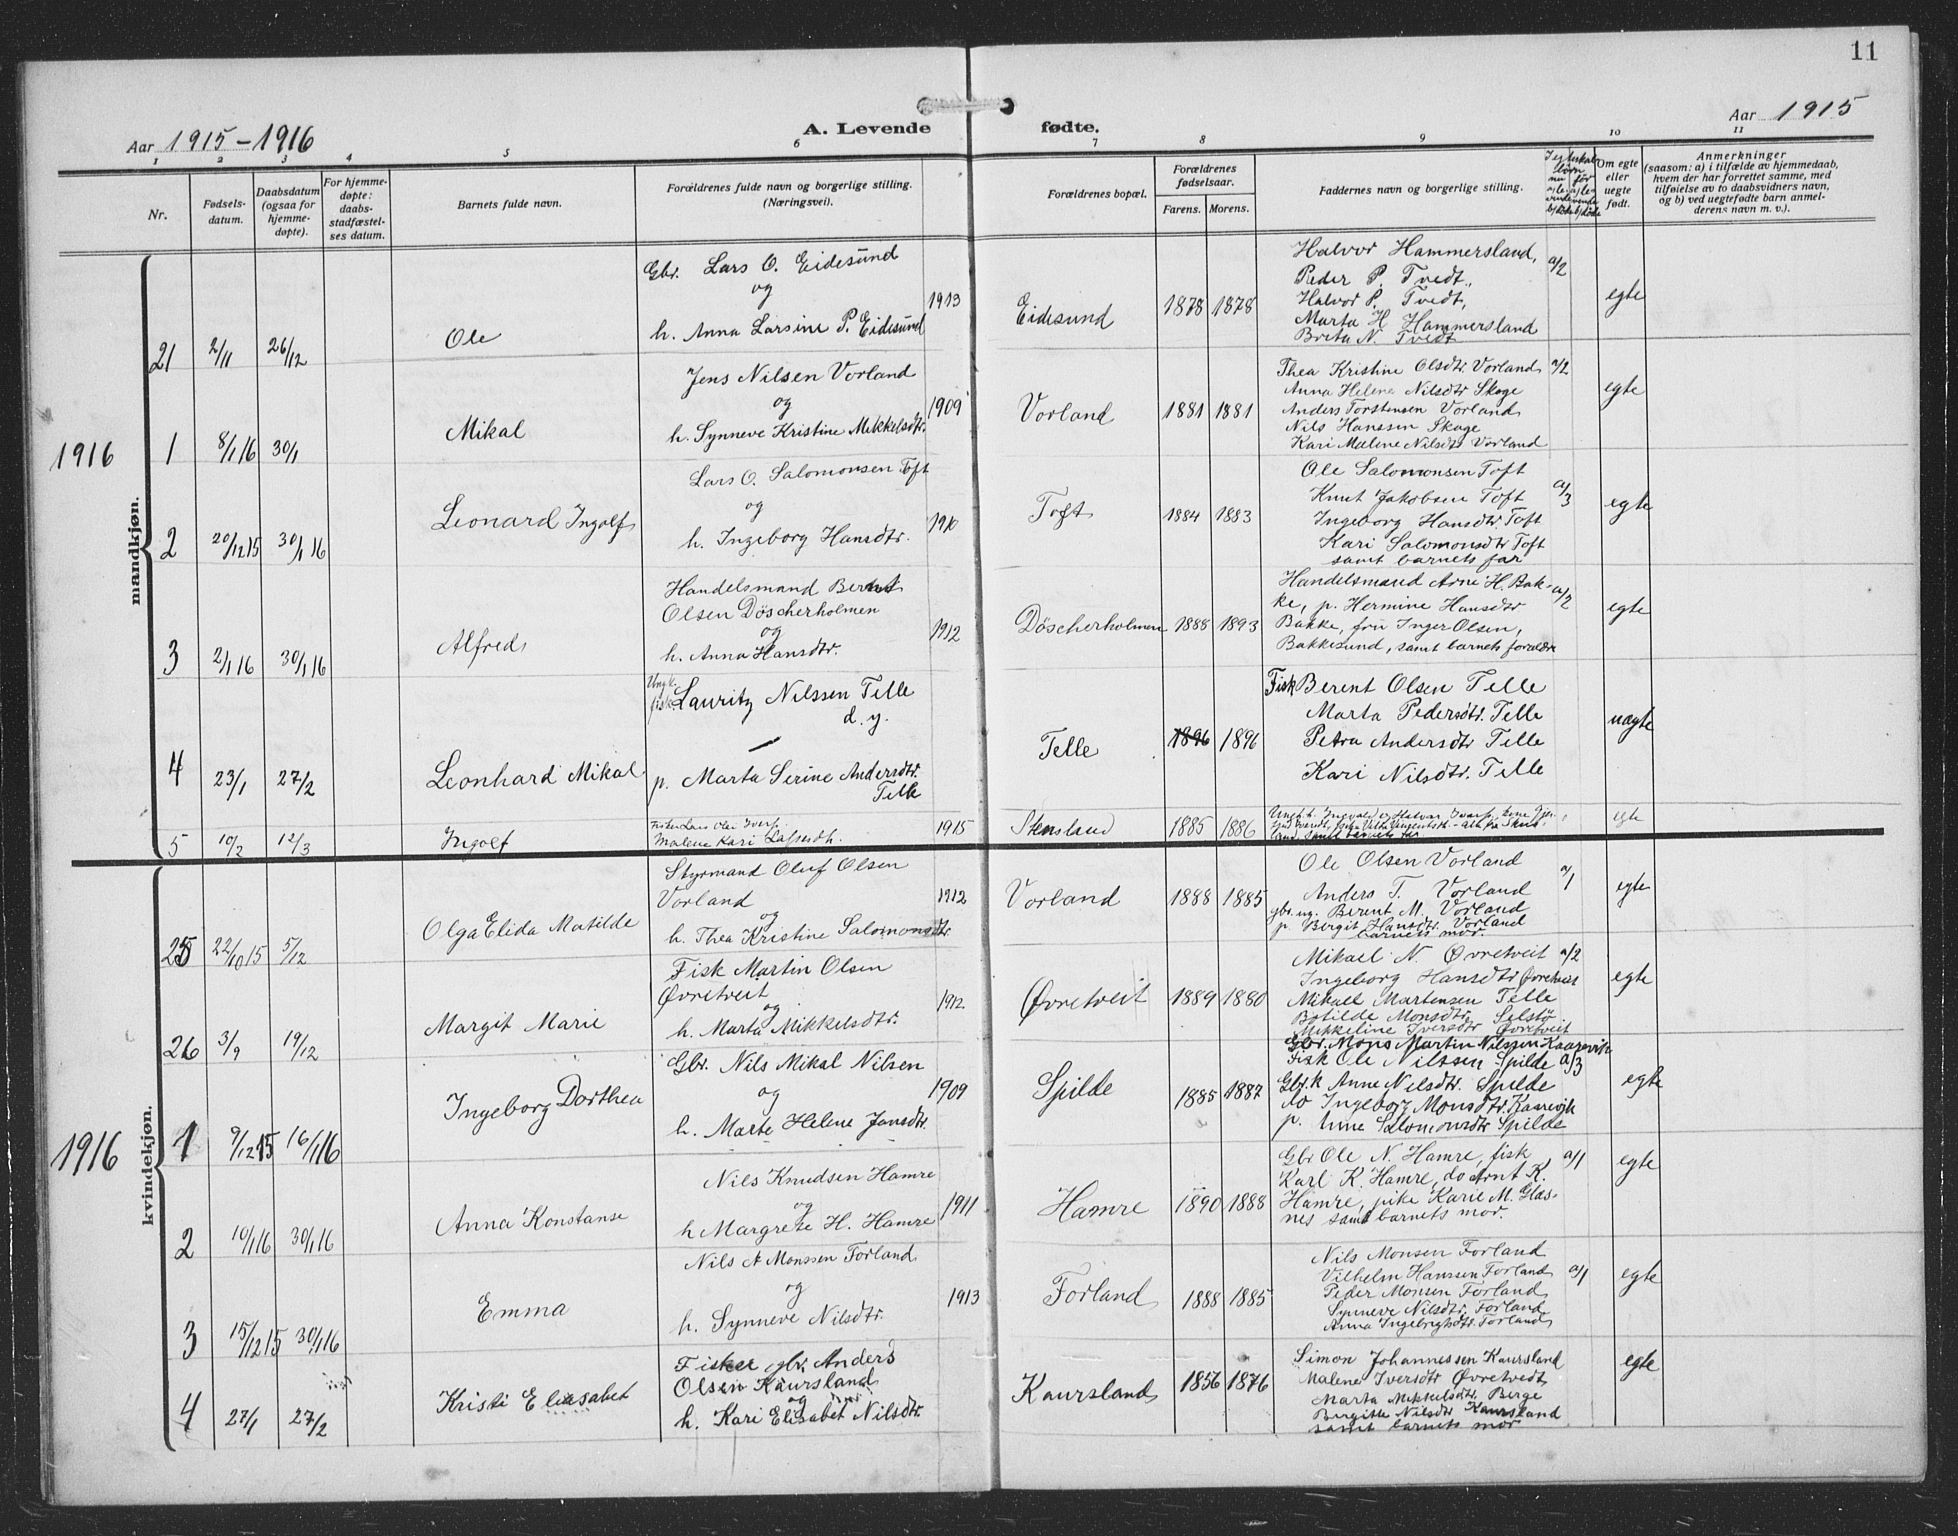 11
Aar 1915-1916
A. Levende fødte.
Aar 1915
1 2 3 4 5 6 7 8 9 10 11
Nr.
Fødsels-
datum.
Daabsdatum
(ogsaa for
hjemme-
døpte).
For hjemme-
døpte:
daabs-
stadfæstel-
ses datum.
Barnets fulde navn.
Forældrenes fulde navn og borgerlige stilling.
(Næringsvei).
Forældrenes bopæl.
Forældrenes
fødselsaar.
Farens. Morens.
Faddernes navn og borgerlige stilling.
Om egte
eller
uegte
født.
Anmerkninger
(saasom: a) i tilfælde av hjemmedaab,
hvem der har forrettet samme, med
tilføielse av to daabsvidners navn,
og b) ved uegtefødte barn anmel-
derens navn m. v.).
mandkjøn.
21 2/11 26/12 Ole
Gbr. Lars O. Eidesund
og
h. Anna Larsine P. Eidesund
1913 Eidesund 1878 1878
Halvor Hammersland,
Peder P. Tvedt,
Halvor P. Tvedt,
Marta H. Hammersland
Brita N. Tvedt
a/2 egte
1916
1 8/1 16 30/1 Mikal
Jens Nilsen Vorland
og
h. Synneve Kristine Mikkelsdtr.
1909 Vorland 1881 1881
Thea Kristine Olsdtr Vorland
Anna Helene Nilsdtr Skoge
Anders Torstensen Vorland
Nils Hanssen Skoge
Kari Malene Nilsdtr Vorland
a/2 egte
2 20/12 15 30/1 16 Leonard Ingolf
Lars O. Salomonsen Toft
og
h. Ingeborg Hansdtr.
1910 Toft 1884 1883
Ole Salomonsen Toft
Knut Jakobsen Toft
Ingeborg Hansdtr Toft
Kari Salomonsdtr Toft
samt barnets far
a/3 egte
3 2/1 16 30/1 16 Alfred
Handelsmand Bernt
Olsen Döscherholmen
og
h. Anna Hansdtr.
1912 Döscherholmen 1888 1893
Handelsmand Arne H. Bak-
ke, p. Hermine Hansdtr
Bakke, fru Inger Olsen,
Bakkesund, samt barnets forældre
a/2 egte
4 23/1 27/2 Leonhard Mikal
Ungk.
fisk. Lauritz Nilssen Telle
d. y.
p. Marta Serine Andersdtr.
Telle
Telle 1896 1896
Fisk Berent Olsen Telle
Marta Pedersdtr. Telle
Petra Andersdtr Telle
Kari Nilsdtr. Telle
uægte
5 10/2 12/3 Ingolf
Fisker Lars Olai Ivers.
Malene Kari Lassesdtr.
1915 Stensland 1885 1886
samt barnets far
egte
kvindekjøn.
25 22/10 15 5/12 Olga Elida Matilde
Styrmand Oluf Olsen
Vorland
og
h. Thea Kristine Salomonsdtr
1912 Vorland 1888 1885
Ole Olsen Vorland
Anders T. Vorland
gbr. ug. Berent M. Vorland
p. Birgit Hansdtr. Vorland
barnets mor.
a/1 egte
26 3/9 19/12 Margit Marie
Fisk Martin Olsen
Øvretveit
og
h. Marta Mikkelsdtr.
1912 Øvretveit 1889 1880
Mikael N. Øvretveit
Ingeborg Hansdtr Øvretveit
Mikael Martensen Telle
Botilde Monsdtr. Selstø
Mikkeline Iversdtr Øvretveit
a/2 egte
1916
1 9/12 15 16/1 16 Ingeborg Dorthea
Gbr. Nils Mikal Nilsen
og
h. Marte Helene Jansdtr.
1909 Spilde 1885 1887
Gbr. Mons Martin Nilssen Kaarevik
Fisk Ole Nilssen Spilde
Gbr.k Anne Nilsdtr. Spilde
do Ingeborg Monsdtr. Kaarevik
p. Anne Salomonsdtr Spilde
a/3 egte
2 10/1 16 30/1 16 Anna Konstanse
Nils Knudsen Hamre
og
h Margrete H. Hamre
1911 Hamre 1890 1888
Gbr Ole N. Hamre, fisk
Karl K. Hamre, do Arnt K.
Hamre, pike Karie M. Glæs-
nes samt barnets mor.
a/1 egte
3 15/12 15 30/1 16 Emma
Nils A Monssen Forland
og
h. Synneve Nilsdtr.
1913 Forland 1888 1885
Nils Monsen Forland
Vilhelm Hanssen Forland
Peder Monsen Forland
Synneve Nilsdtr. Forland
Anna Ingebrigtsdtr. Forland
a/1 egte
4 27/1 27/2 Kristi Eliasabet
Fisker gbr. Anders
Olsen Kaursland
og
h. Kari Elisabet Nilsdtr.
Kaursland 1856 1876
Simon Johannessen Kaursland
Malene Iversdtr Øvretvedt
Marta Mikkelsdtr. Berge
Bergitte Nilsdtr Kaursland
samt barnets mor
egte